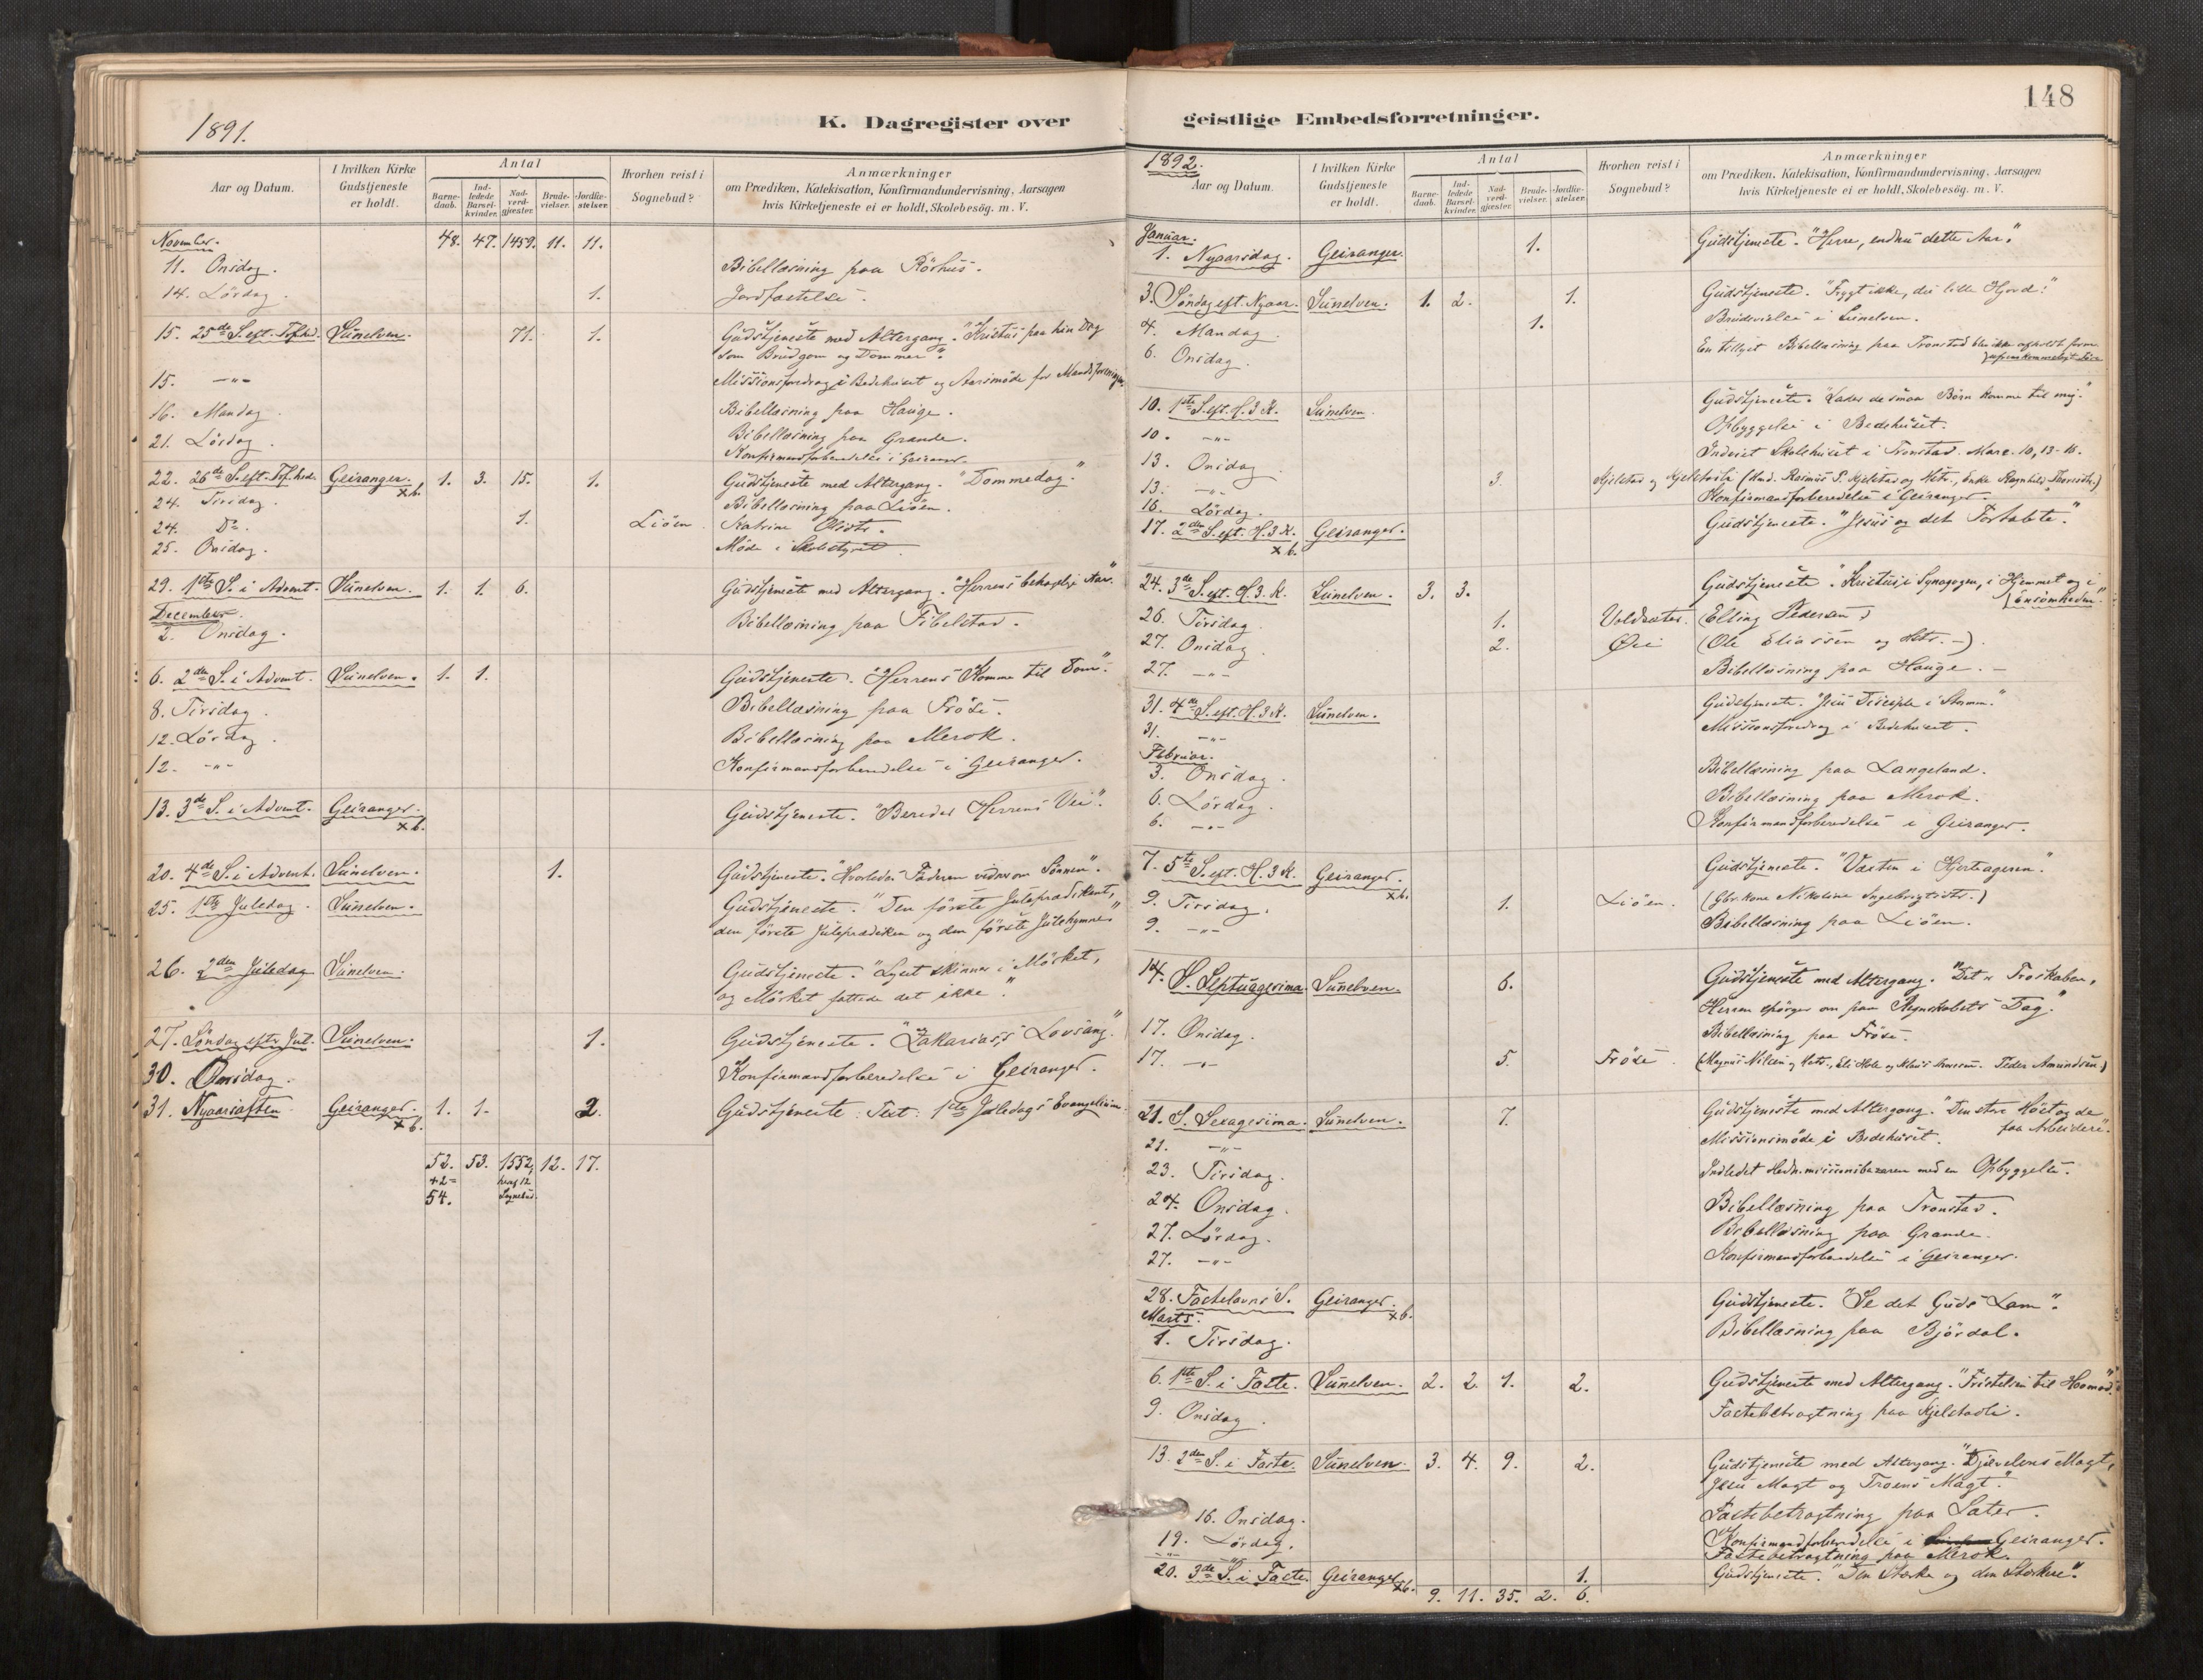 1891.
K. Dagregister over
Aar og Datum.
I hvilken Kirke Gudstjeneste er holdt.
Antal
Barne-daab.
Ind-ledede Barsel-kvinder.
Nad-verd-gjæster.
Brude-vielser.
Jordfæ-stelser.
Hvorhen reist i Sognebud?
Anmærkninger
om Prædiken, Katekisation, Konfirmandundervisning, Aarsagen
hvis Kirketjeneste ei er holdt, Skolebesøg. m. V.
November. 48. 47. 1459. 11. 11.
11. Onsdag. Bibellæsning paa Rörhus.
14. Lördag. 1. Jordfæstelse.
15. 25de S. eft. Trefhed. Sunelven. 71. 1. Gudstjeneste med Altergang. "Kristus paa hin Dag
som Brudgom og Dommer."
15. -"- Missionsforedrag i Bedehuset og Aarsmöde for Mandsforeningen.
16. Mandag. Bibellæsning paa Hauge.
21. Lördag. Bibellæsning paa Grande.
Konfirmandforberedelse i Geiranger.
22. 26de S. eft. Tref.hed. Geiranger. x b. 1. 3. 15. 1. Gudstjeneste med Altergang. "Dommedag."
24. Tirsdag. Bibellæsning paa Liöen.
24. Do. 1. Liöen. Katrine Olsdtr.
25. Onsdag. Möde i Skolestyret.
29. 1ste S. i Advent. Sunelven. 1. 1. 6. Gudstjeneste med Altergang. "Herrens behagelige Aar."
December.
2. Onsdag. Bibellæsning paa Fibelstad.
6. 2den S. i Advent. Sunelven. 1. 1. Gudstjeneste. "Herrens Komme til Dom."
8. Tirsdag. Bibellæsning paa Fröse.
12. Lördag. Bibellæsning paa Merok.
12. -"- Konfirmandforberedelse i Geiranger.
13. 3de S. i Advent. Geiranger. x b. Gudstjeneste. "Bereder Herrens Vei".
20. 4de S. i Advent. Sunelven. 1. Gudstjeneste. "Hvorledes Faderen vidner om Sönnen".
25. 1ste Juledag. Sunelven. Gudstjeneste. "Den förste Juleprædikant,
den förste Juleprædiken og den förste Julehymne"
26. 2den Juledag Sunelven. Gudstjeneste. "Lyset skinner i Mörket,
og Mörket fattede det ikke."
27. Söndag efter Jul. Sunelven. 1. Gudstjeneste. "Zakarias's Lovsang."
30. Onsdag. Konfirmandforberedelse i Geiranger.
31. Nyaarsaften Geiranger. x b. 1. 1. 2. Gudstjeneste: Text: 1ste Juledags Evangelium.
52. 53. 1552, 12. 17.
+2= hvoraf 12
54. Sognebud.
148
geistlige Embedsforretninger.
1892.
Aar og Datum.
I hvilken Kirke Gudstjeneste er holdt.
Antal
Barne-daab.
Ind-ledede Barsel-kvinder.
Nad-verd-gjæster.
Brude-vielser.
Jordfæ-stelser.
Hvorhen reist i Sognebud?
Anmærkninger
om Prædiken, Katekisation, Konfirmandundervisning, Aarsagen
hvis Kirketjeneste ei er holdt, Skolebesøg. m. V.
Januar.
1. Nyaarsdag. Geiranger. 1. Gudstjeneste. "Herre, endnu dette Aar."
3. Söndag eft. Nyaar. Sunelven. 1. 2. 1. Gudstjeneste. "Frygt ikke, du lille Hjord."
4. Mandag. 1. Brudevielse i Sunelven.
6. Onsdag. En tillyst Bibellæsning paa Tronstad blev ikke afholdt
10. 1ste S. eft. H. 3 K. Sunelven. Gudstjeneste. "Lader de smaa Börn komme til mig."
10. -"- Opbyggelse i Bedehuset.
13. Onsdag Indviet Skolehuset i Tronstad. Marc. 10, 13-16.
13. -"- 3. Kjelstad og Kjelstadli (Rasmus P. Kjelstad og Hstr., Enke Ragnhild )
16. Lördag. Konfirmandforberedelse i Geiranger.
17. 2den S. eft. H. 3 K. x b. Geiranger. Gudstjeneste. "Jesus og det Fortabte."
24. 3de S. eft. H. 3. K. Sunelven. 3. 3. Gudstjeneste. "Kristus i Synagogen, i Hjemmet og i
Ensomheden."
26. Tirsdag 1. Voldsæter. (Elling Pedersen)
27. Onsdag 2. Øie (Ole Eliassen og Hstr. -).
27. -"- Bibellæsning paa Hauge. -
31. 4de S. eft. H. 3 K. Sunelven. Gudstjeneste. "Jesu Disciple i Stormen."
31. -"- Missionsforedrag i Bedehuset.
Februar.
3. Onsdag. Bibellæsning paa Langeland.
6. Lördag. Bibellæsning paa Merok.
6. -"- Konfirmandforberedelse i Geiranger.
7. 5te S. eft. H. 3 K. Geiranger. x b. Gudstjeneste. "Væxten i Hjerteageren."
9. Tirsdag. 1. Liöen. (Gbr. kone Nikoline Ingebrigtsdtr.)
9. -"- Bibellæsning paa Liöen.
14. S. Septuagesima. Sunelven. 6. Gudstjeneste med Altergang. "Det er Troskaben,
Herren spörger om paa Regnskabets Dag."
17. Onsdag. Bibellæsning paa Fröse.
17. -"- 5. Fröse. (Magnus Nilsen og Hstr., Eli Hole og Peder Amundsen)
21. S. Sexagesima. Sunelven. 7. Gudstjeneste med Altergang. "Den store Höst og de
faa Arbeidere".
21. -"- Missionsmöde i Bedehuset.
23. Tirsdag. Indledet Hedn.missionsbazaren med en Opbyggelse.
24. Onsdag. Bibellæsning paa Tronstad.
27. Lördag. Bibellæsning paa Grande.
27. -"- Konfirmandforberedelse i Geiranger.
28. Fastelavns S. Geiranger. x b. Gudstjeneste. "Se det Guds Lam".
Marts.
1. Tirsdag. Bibellæsning paa Björdal.
6. 1ste S. i Faste. Sunelven. 2. 2. 1. 2. Gudstjeneste med Altergang. "Fristelsen til Hovmod."
9. Onsdag. Fastebetragtning paa Kjelstadli.
13. 2den S. i Faste. Sunelven. 3. 4. 9. 2. Gudstjeneste med Altergang. "Djævelens Magt,
Jesu Magt og Troens Magt."
16. Onsdag. Fastebetragtning paa Sæter.
19. Lördag. Konfirmandforberedelse i Geiranger.
-"- -"- Fastebetragtning paa Merok.
20. 3de S. i Faste. Geiranger x b. 1. Gudstjeneste. "Den Stærke og den Stærkere."
9. 11. 35. 2. 6.